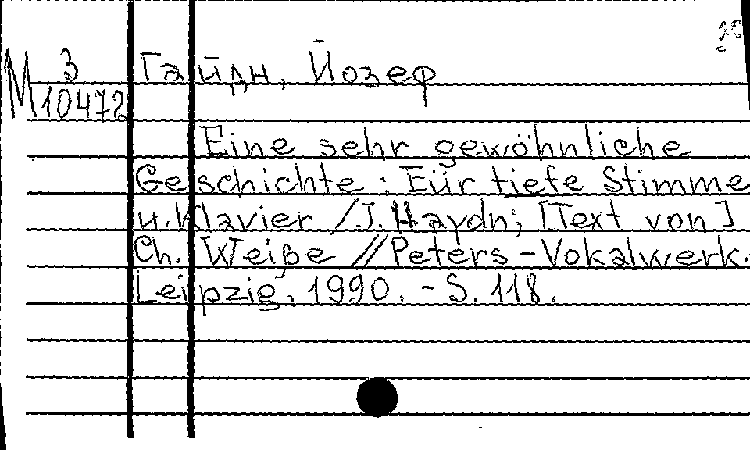 М 3 Гайдн, Йозеф
10472
Eine sehr gewöhnliche
Geschichte : Für tiefe Stimme
u. Klavier / J. Haydn; [Text von]
Ch. Weiße // Peters - Vokalwerk.
Leipzig, 1990. - S. 118.